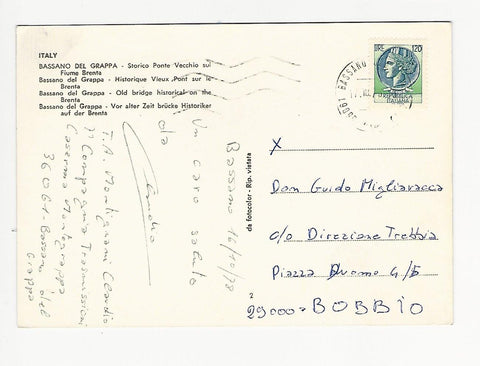 ITALY
BASSANO DEL GRAPPA - Storico Ponte Vecchio sul
Fiume Brenta
Bassano del Grappa - Historique Vieux Pont sur le
Brenta
Bassano del Grappa - Old bridge historical on the
Brenta
Bassano del Grappa - Vor alter Zeit brücke Historiker
auf der Brenta
Bassano 16/10/78
Un caro saluto
da
Claudio
T.A. Claudio
7ª Compagnia Trasmissioni
Caserma Montegrappa
36061 - Bassano del
Grappa
da fotocolor - Rip. vietata
2
LIRE 120
36061 BASSANO
X
Don Guido Migliavacca
c/o Direzione Trebbia
Piazza Duomo 4/5
29000 = BOBBIO